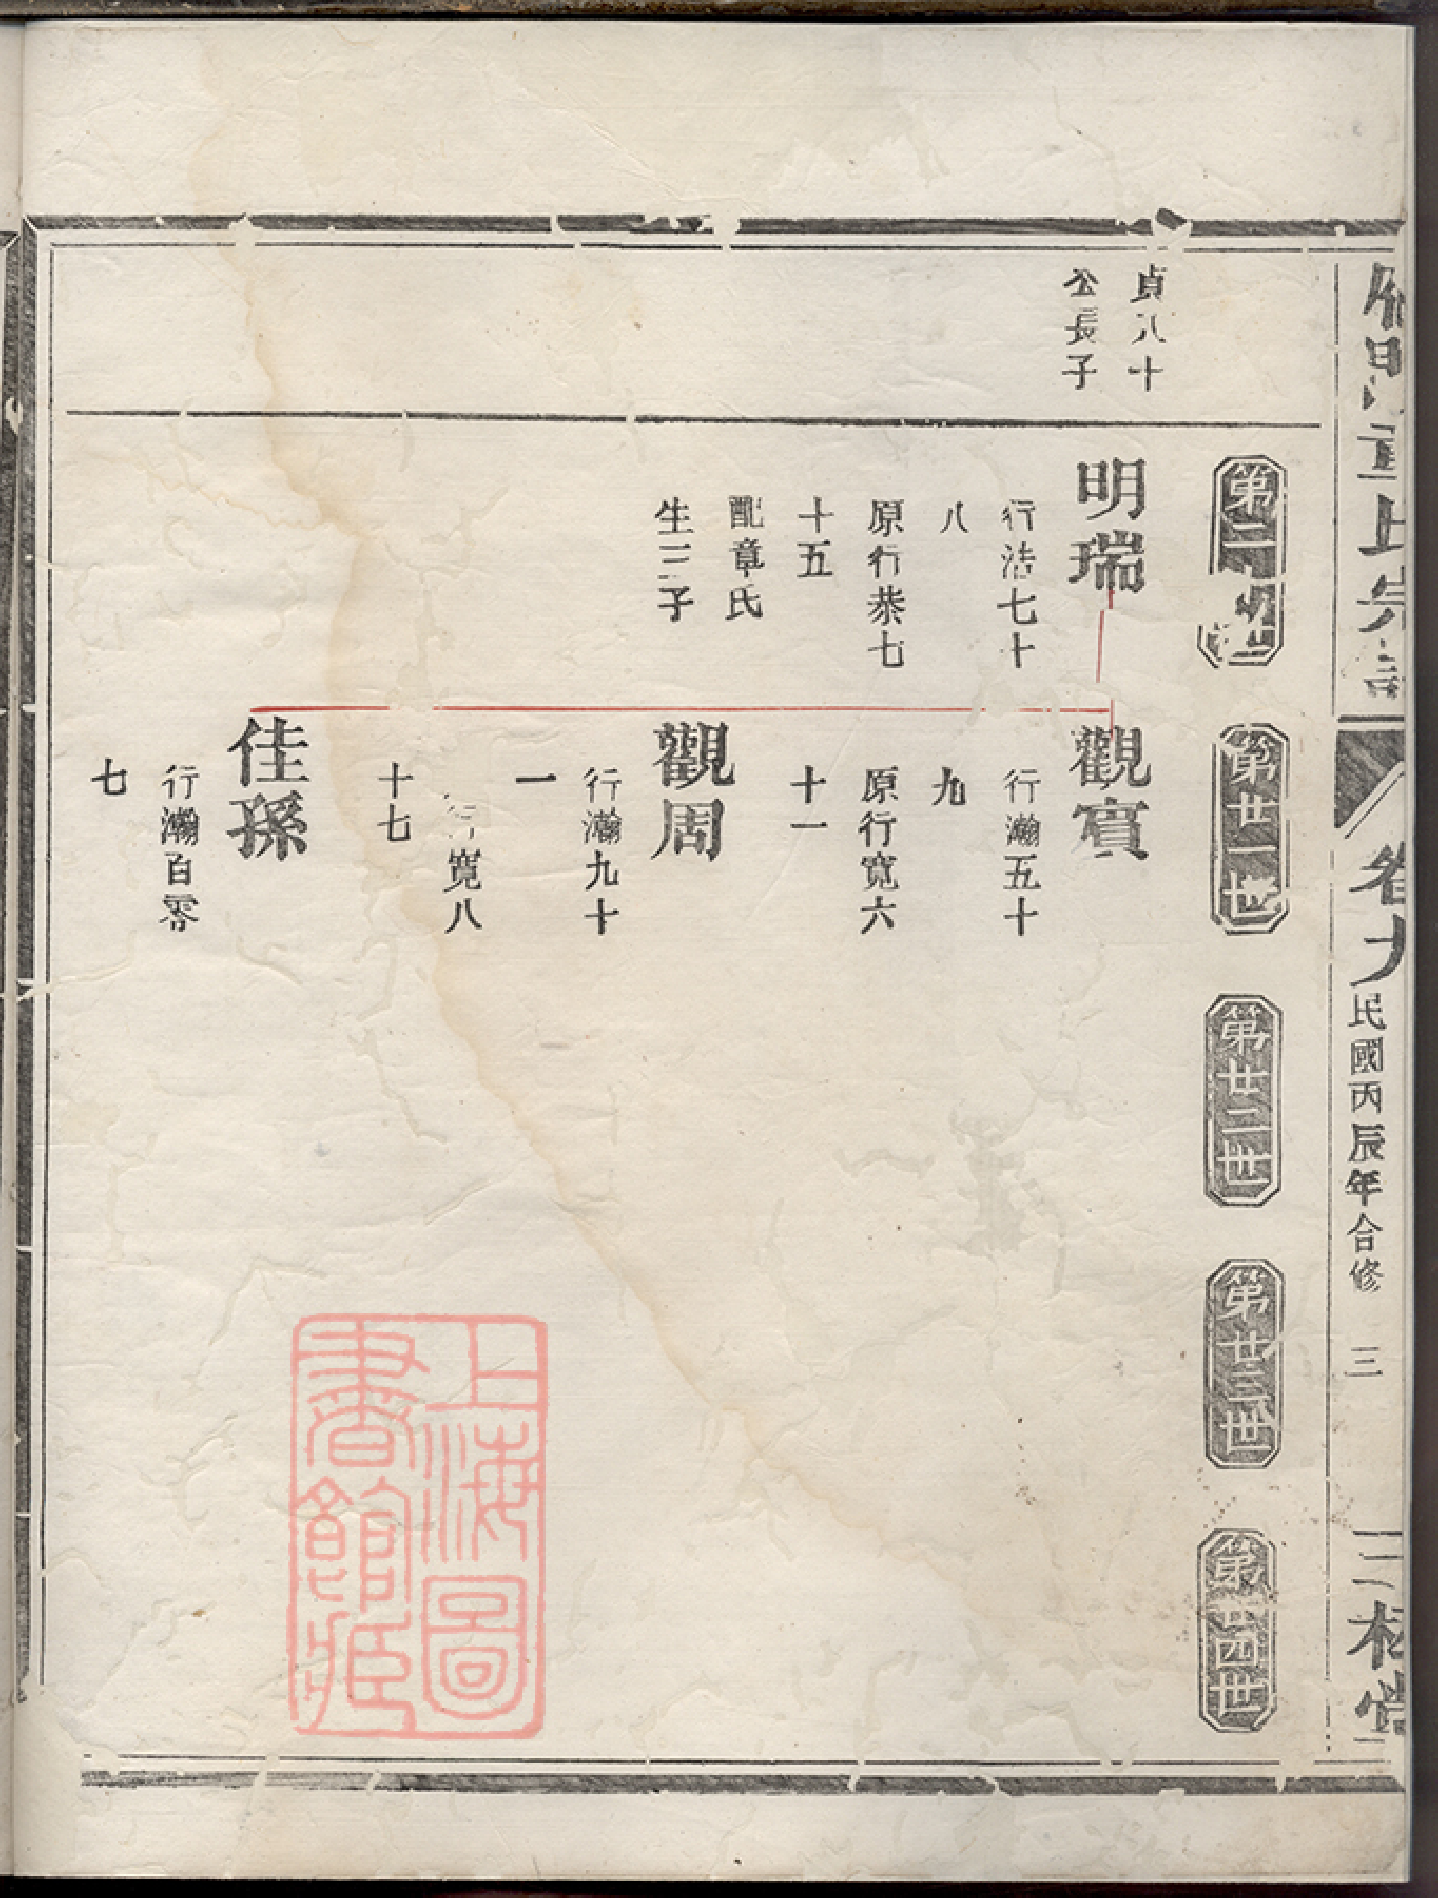 卷九
民國丙辰年合修 三
第廿一世
第廿二世
第廿三世
第廿四世
貞八十
公長子
明瑞
行浩七十
八
原行恭七
十五
配章氏
生三子
觀賓
行瀚五十
九
原行寬六
十一
觀周
行瀚九十
一
行寬八
十七
佳孫
行瀚百零
七
上海圖
書館藏